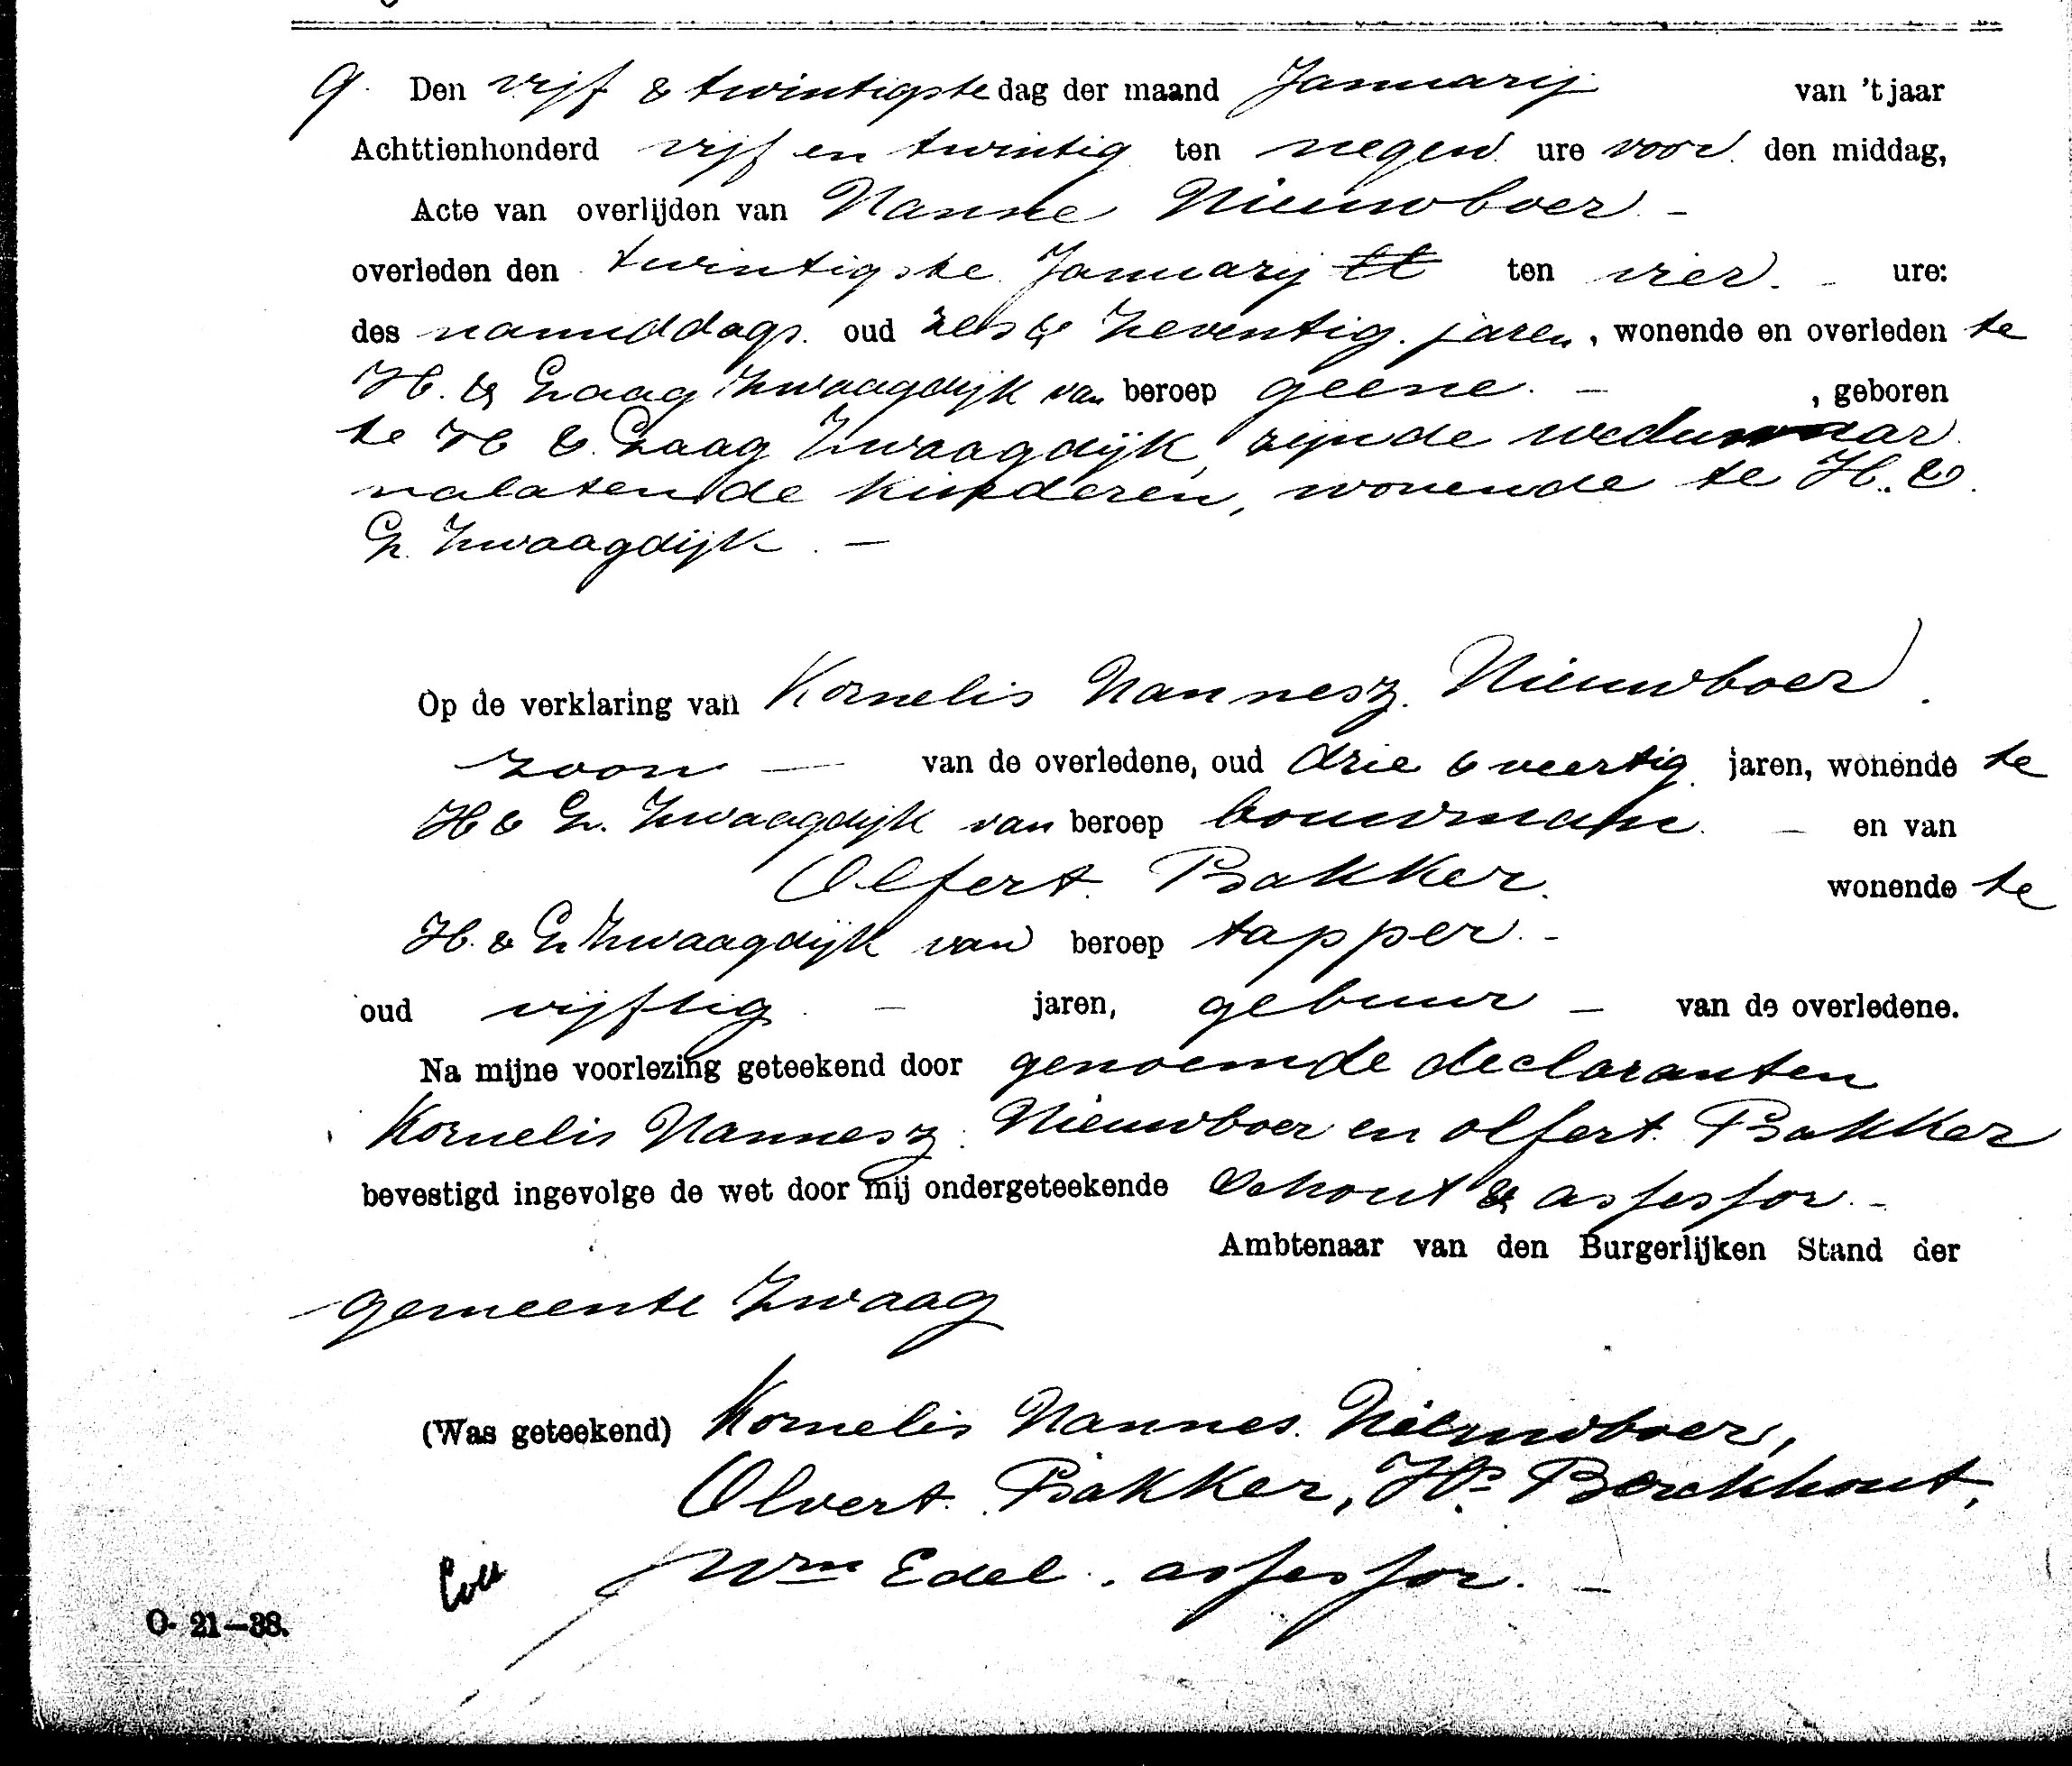 9. Den vijf & twintigste dag der maand Januarij van 't jaar
Achttienhonderd vijf en twintig ten negen ure voor den middag,
Acte van overlijden van Nanne Nieuwboer -
overleden den twintigste Januarij tt ten vier - ure:
des namiddags oud zes & zeventig jaren, wonende en overleden te
H. & Zwaagdijk van beroep geene. - , geboren
te H & Zwaagdijk, zijnde weduwnaar
nalatende kinderen, wonende te H. &
Zwaagdijk. -
Op de verklaring van Kornelis Nannesz. Nieuwboer.
zoon - van de overledene, oud drie & veertig jaren, wonende te
H & Zwaagdijk van beroep bouwman. - en van
Olfert Bakker. wonende te
H. & Zwaagdijk van beroep tapper. -
oud vijftig - jaren, gebuur - van de overledene.
Na mijne voorlezing geteekend door genoemde declaranten
Kornelis Nannesz. Nieuwboer en Olfert Bakker
bevestigd ingevolge de wet door mij ondergeteekende Schout & assessor. -
Ambtenaar van den Burgerlijken Stand der
gemeente Zwaag
(Was geteekend) Kornelis Nannes. Nieuwboer,
Olvert Bakker, Hs Berckhout,
Wm Edel. assessor. -
O. 21-38.